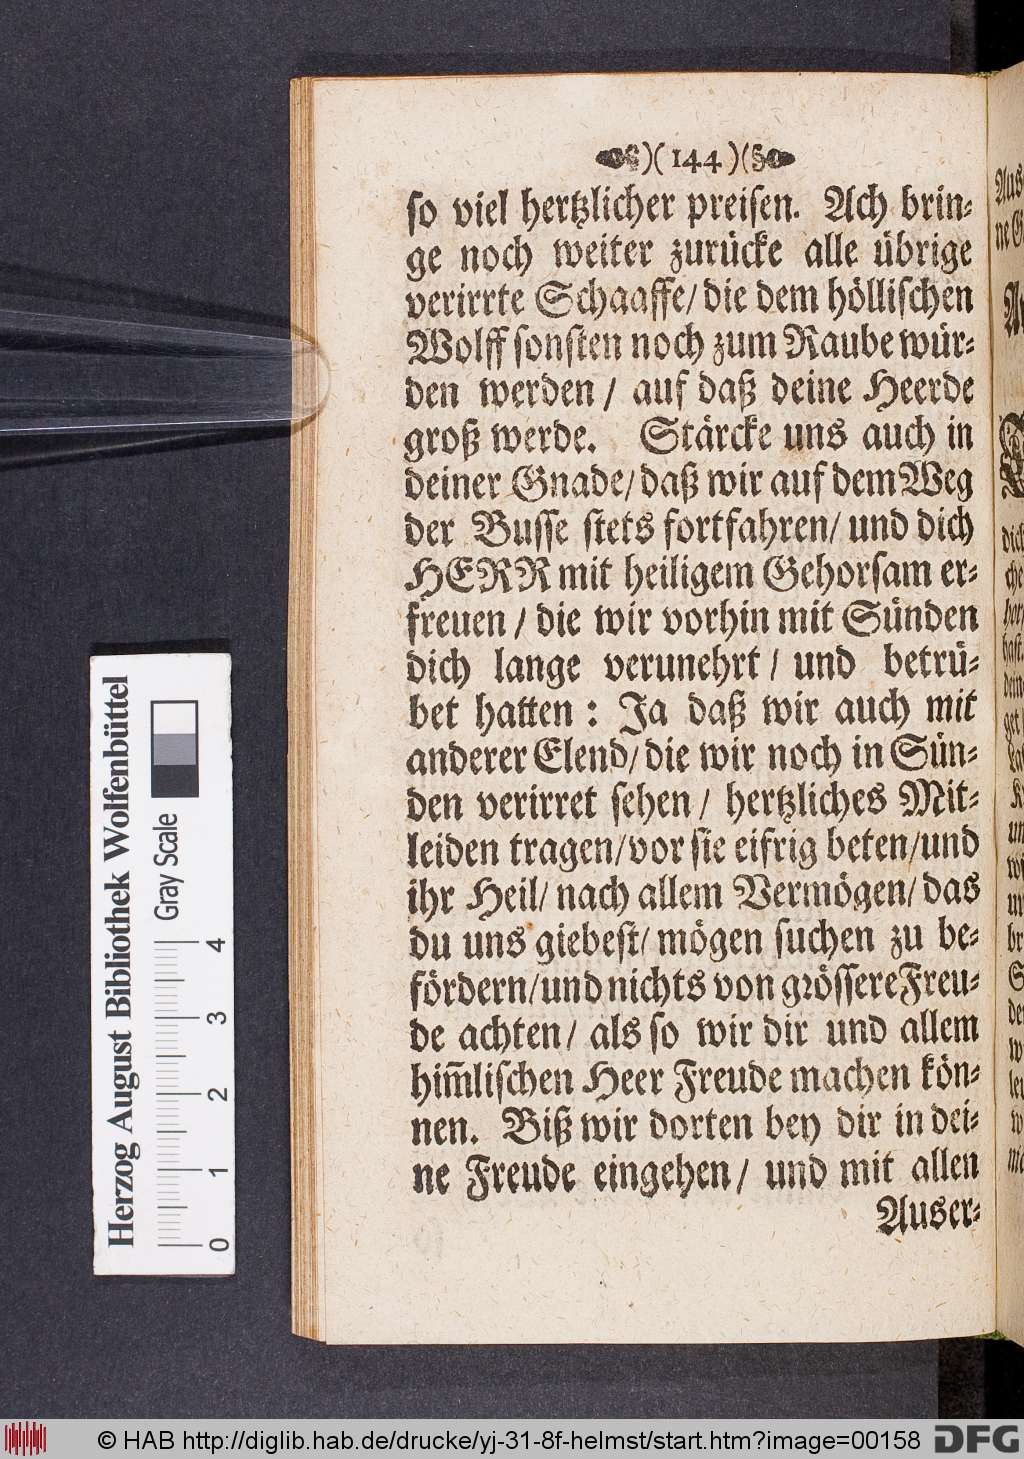 )( 144 )(
so viel hertzlicher preisen. Ach brin-
ge noch weiter zurücke alle übrige
verirrte Schaaffe/ die dem höllischen
Wolff sonsten noch zum Raube wür-
den werden / auf daß deine Heerde
groß werde. Stärcke uns auch in
deiner Gnade/ daß wir auf dem Weg
der Busse stets fortfahren/ und dich
HERR mit heiligem Gehorsam er-
freuen / die wir vorhin mit Sünden
dich lange verunehrt / und betrü-
bet hatten : Ja daß wir auch mit
anderer Elend/ die wir noch in Sün-
den verirret sehen / hertzliches Mit-
leiden tragen/ vor sie eifrig beten/ und
ihr Heil/ nach allem Vermögen/ das
du uns giebest/ mögen suchen zu be-
fördern/ und nichts von grössere Freu-
de achten/ als so wir dir und allem
him̄lischen Heer Freude machen kön-
nen. Biß wir dorten bey dir in dei-
ne Freude eingehen/ und mit allen
Auser-
Herzog August Bibliothek Wolfenbüttel
Gray Scale
0 1 2 3 4
© HAB http://diglib.hab.de/drucke/yj-31-8f-helmst/start.htm?image=00158
DFG